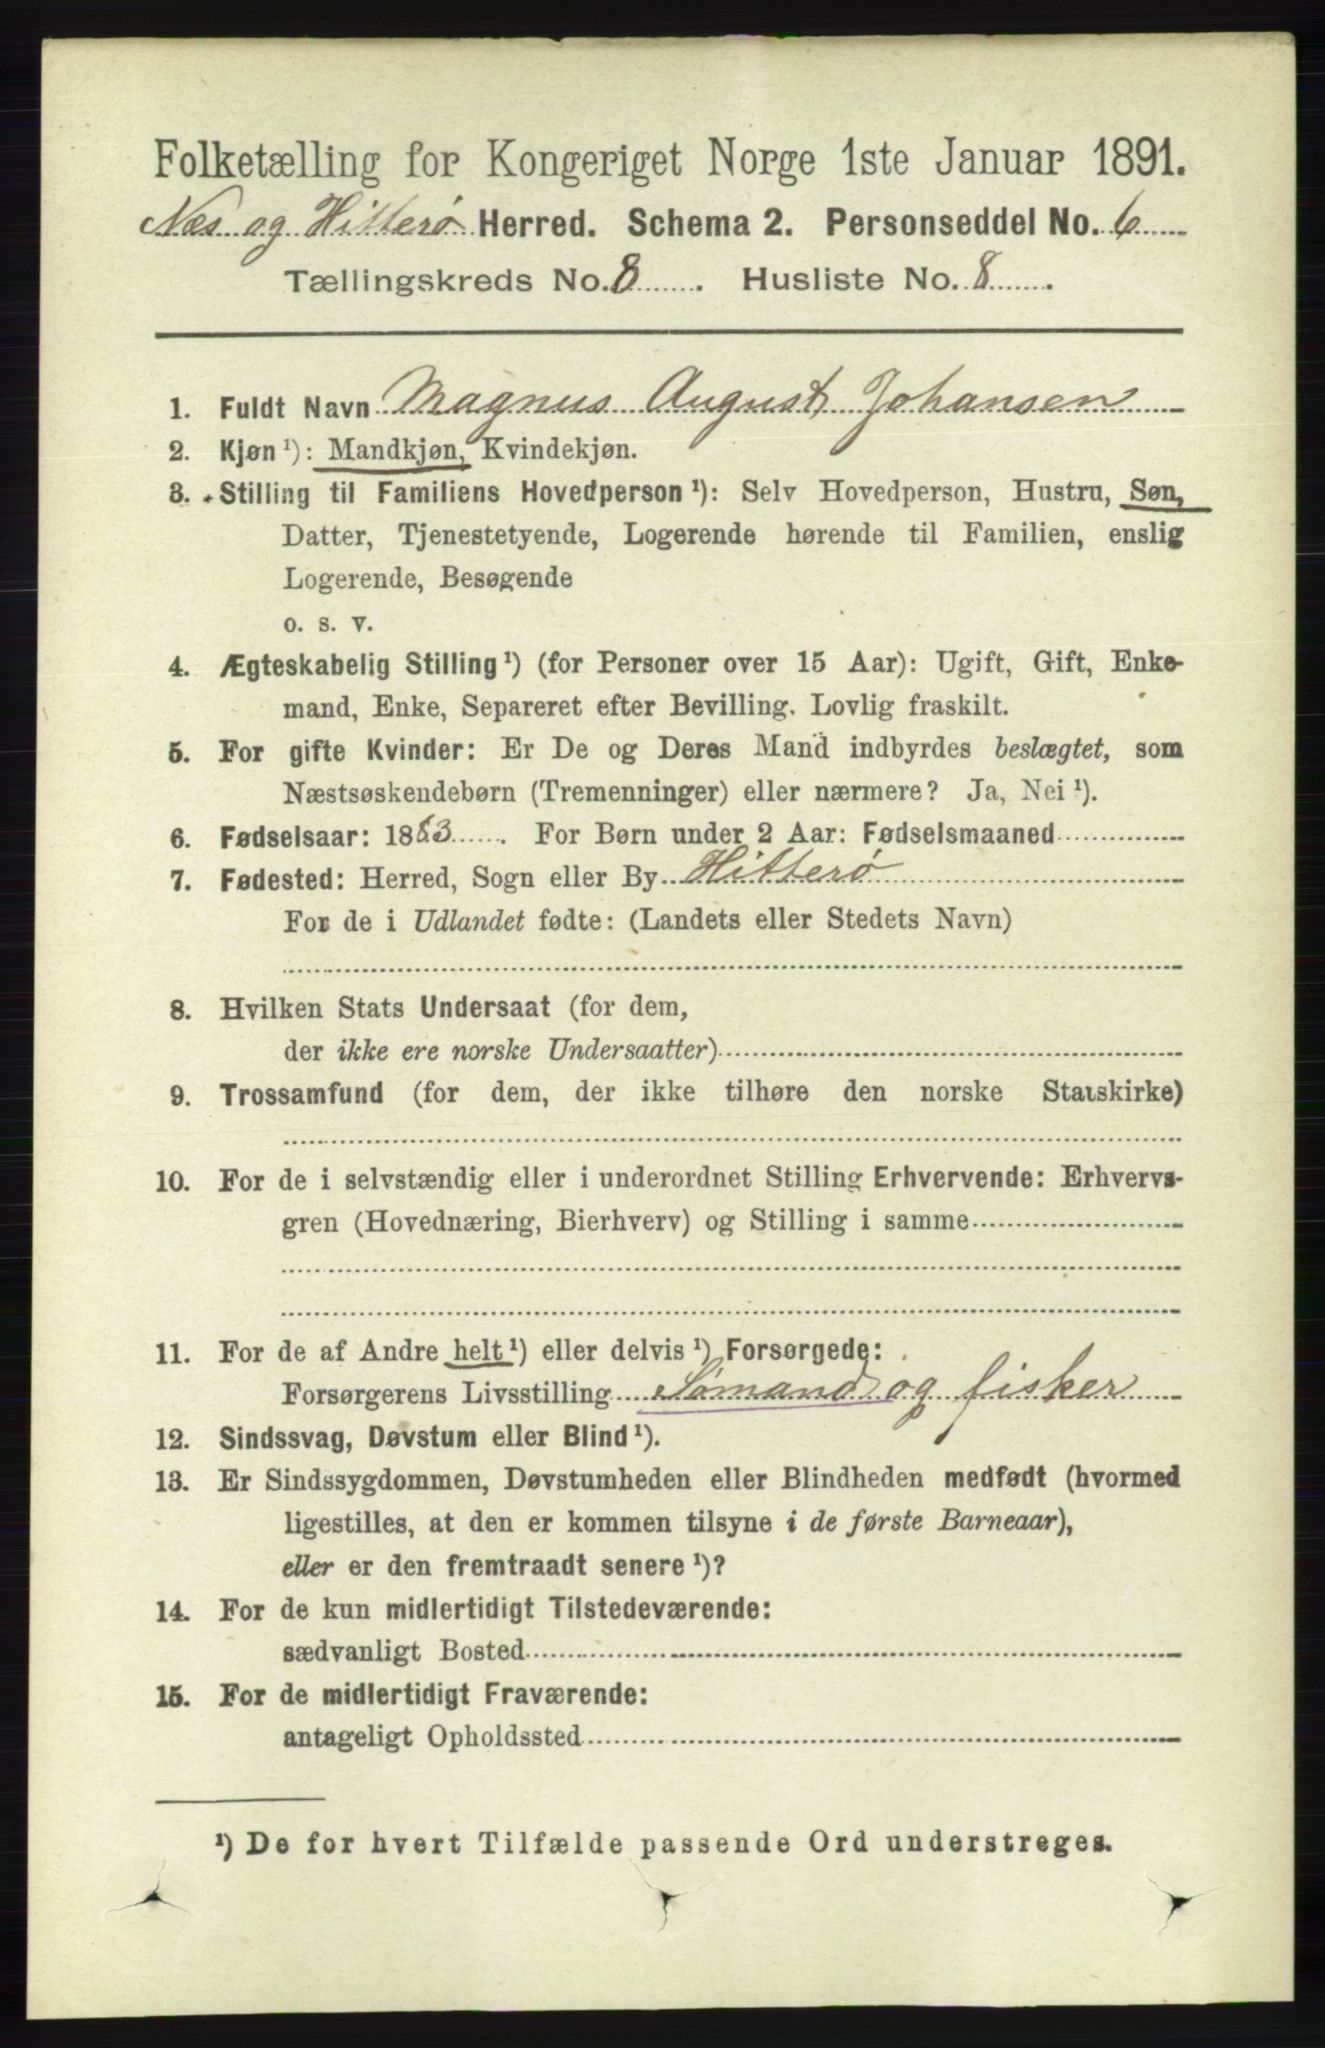 Folketælling for Kongeriget Norge 1ste Januar 1891.
Nes og Hitterø Herred. Schema 2. Personseddel No. 6
Tællingskreds No. 8. Husliste No. 8.
1. Fuldt Navn Magnus August Johansen
2. Kjøn ¹): Mandkjøn, Kvindekjøn.
3. Stilling til Familiens Hovedperson ¹): Selv Hovedperson, Hustru, Søn,
Datter, Tjenestetyende, Logerende hørende til Familien, enslig
Logerende, Besøgende
o. s. v.
4. Ægteskabelig Stilling ¹) (for Personer over 15 Aar): Ugift, Gift, Enke-
mand, Enke, Separeret efter Bevilling. Lovlig fraskilt.
5. For gifte Kvinder: Er De og Deres Mand indbyrdes beslægtet, som
Næstsøskendebørn (Tremenninger) eller nærmere? Ja, Nei ¹).
6. Fødselsaar: 1883. For Børn under 2 Aar: Fødselsmaaned
7. Fødested: Herred, Sogn eller By Hitterø
For de i Udlandet fødte: (Landets eller Stedets Navn)
8. Hvilken Stats Undersaat (for dem,
der ikke ere norske Undersaatter)
9. Trossamfund (for dem, der ikke tilhøre den norske Statskirke)
10. For de i selvstændig eller i underordnet Stilling Erhvervende: Erhvervs-
gren (Hovednæring, Bierhverv) og Stilling i samme
11. For de af Andre helt ¹) eller delvis ¹) Forsørgede:
Forsørgerens Livsstilling Sømand og fisker
12. Sindssvag, Døvstum eller Blind ¹).
13. Er Sindssygdommen, Døvstumheden eller Blindheden medfødt (hvormed
ligestilles, at den er kommen tilsyne i de første Barneaar),
eller er den fremtraadt senere ¹)?
14. For de kun midlertidigt Tilstedeværende:
sædvanligt Bosted
15. For de midlertidigt Fraværende:
antageligt Opholdssted
¹) De for hvert Tilfælde passende Ord understreges.